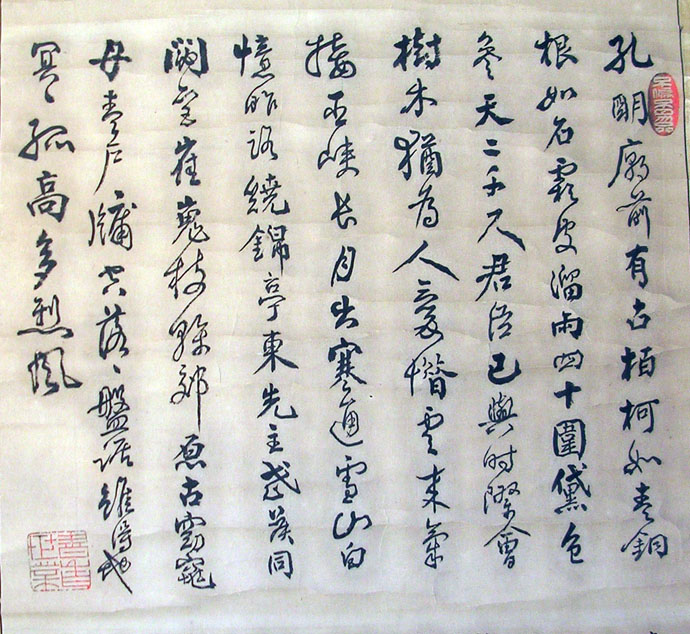 孔明廟前有古柏柯如青銅
根如石霜皮溜雨四十圍黛色
參天二千尺君臣已與時際會
樹木猶為人愛惜雲來氣
接巫峽長月出寒通雪山白
憶昨路繞錦亭東先主武侯同
閟宮崔嵬枝幹郊原古窈窕
丹青戶牖空落々盤踞雖得地
冥々孤高多烈風